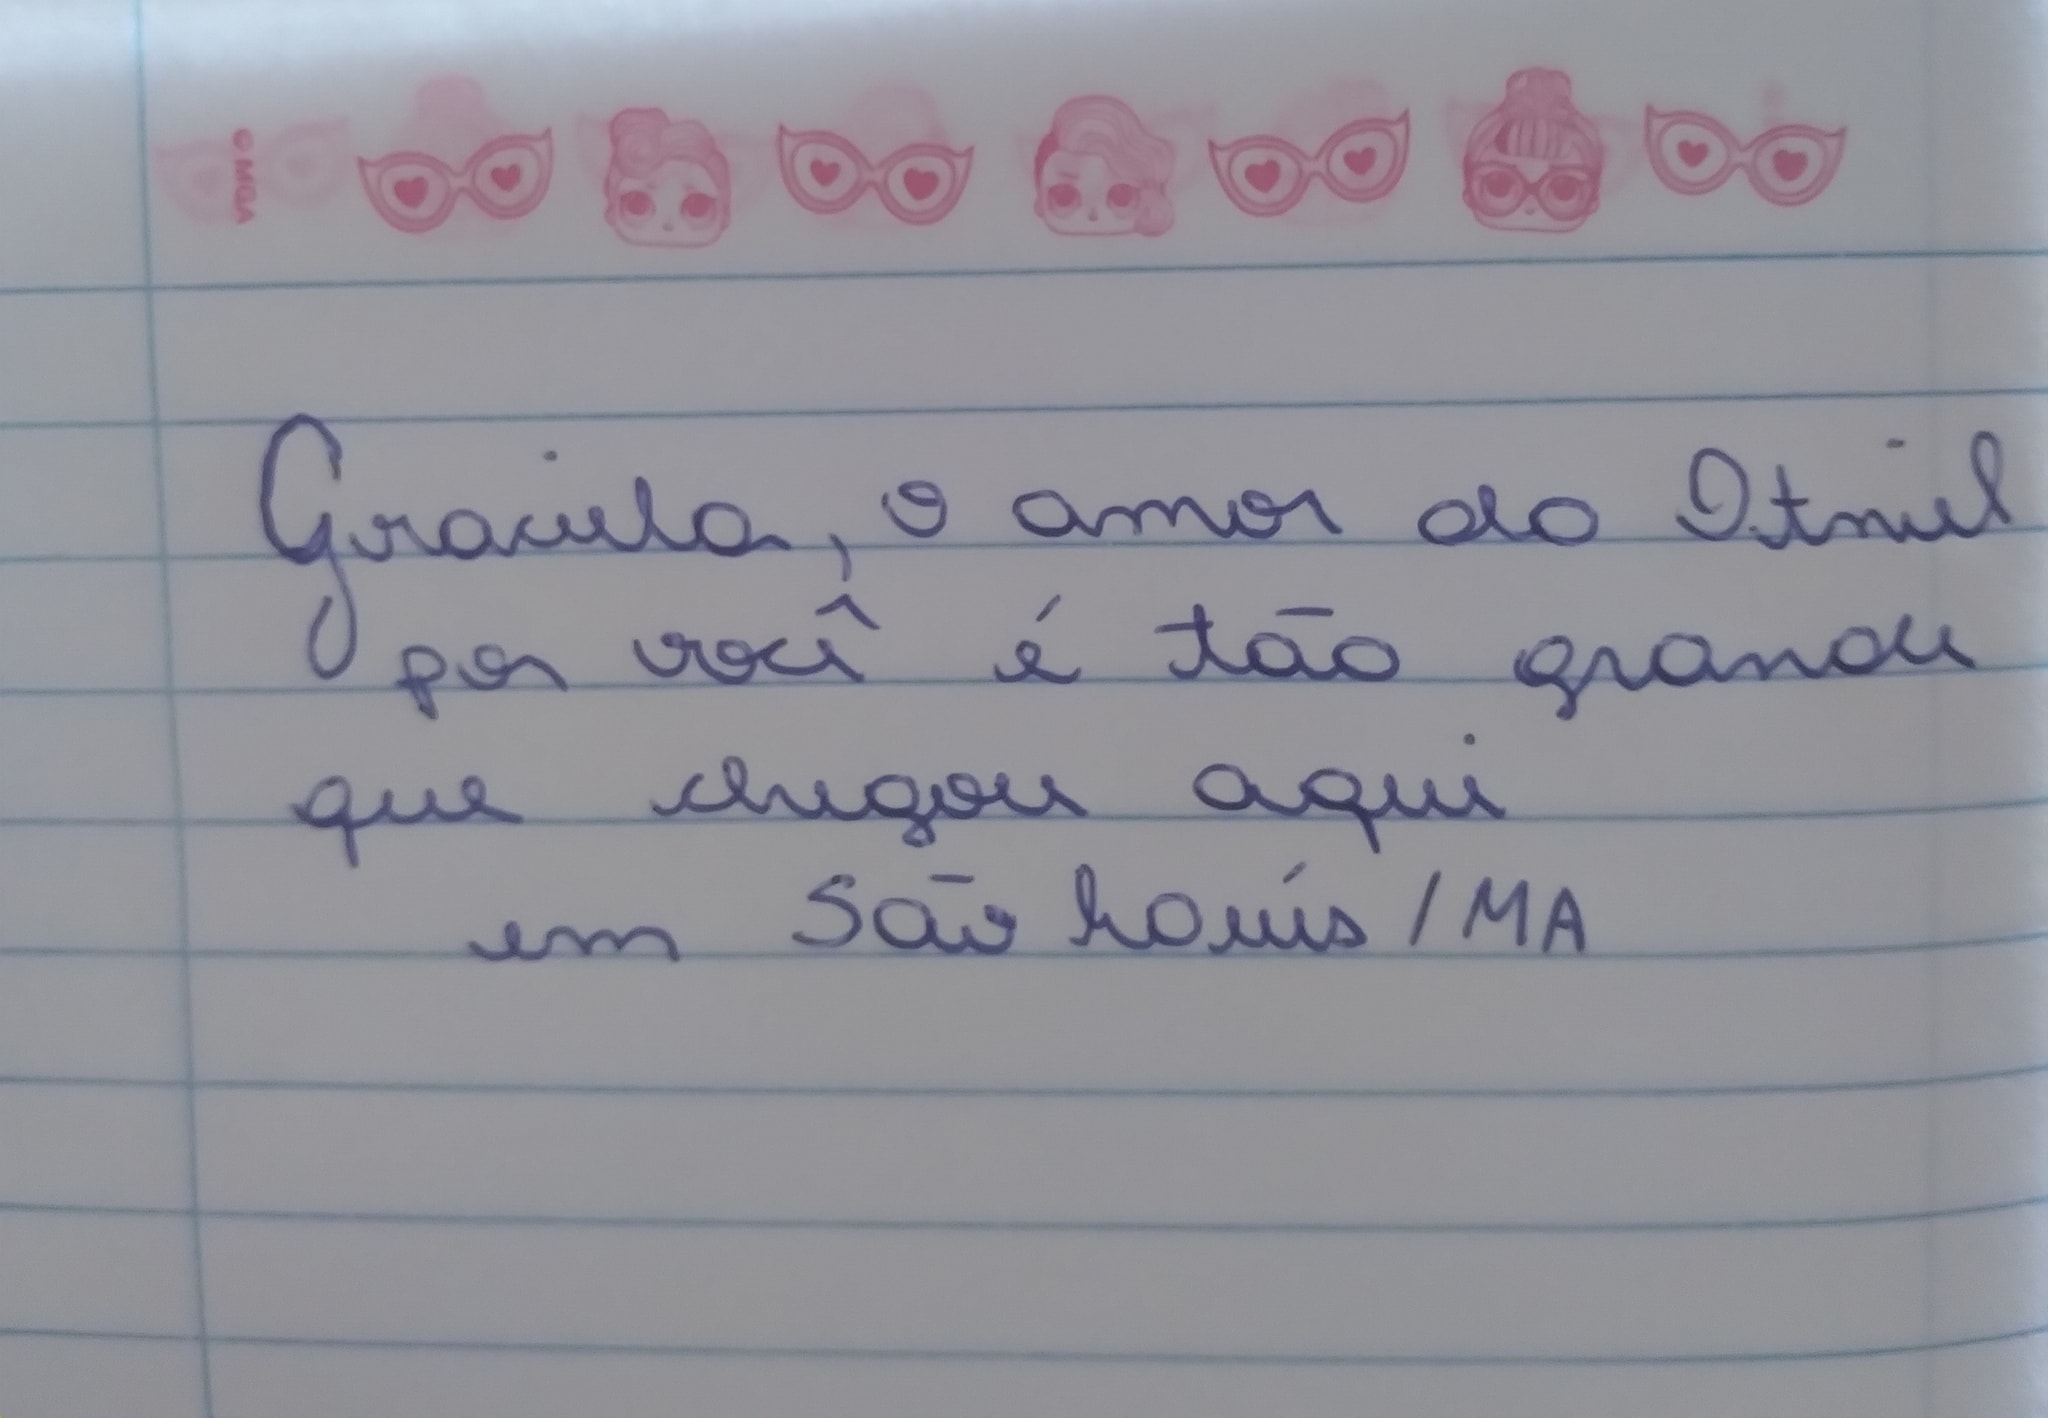 ©MGA
Graciela, o amor do Otniel
por você é tão grande
que chegou aqui
em São Louís / MA